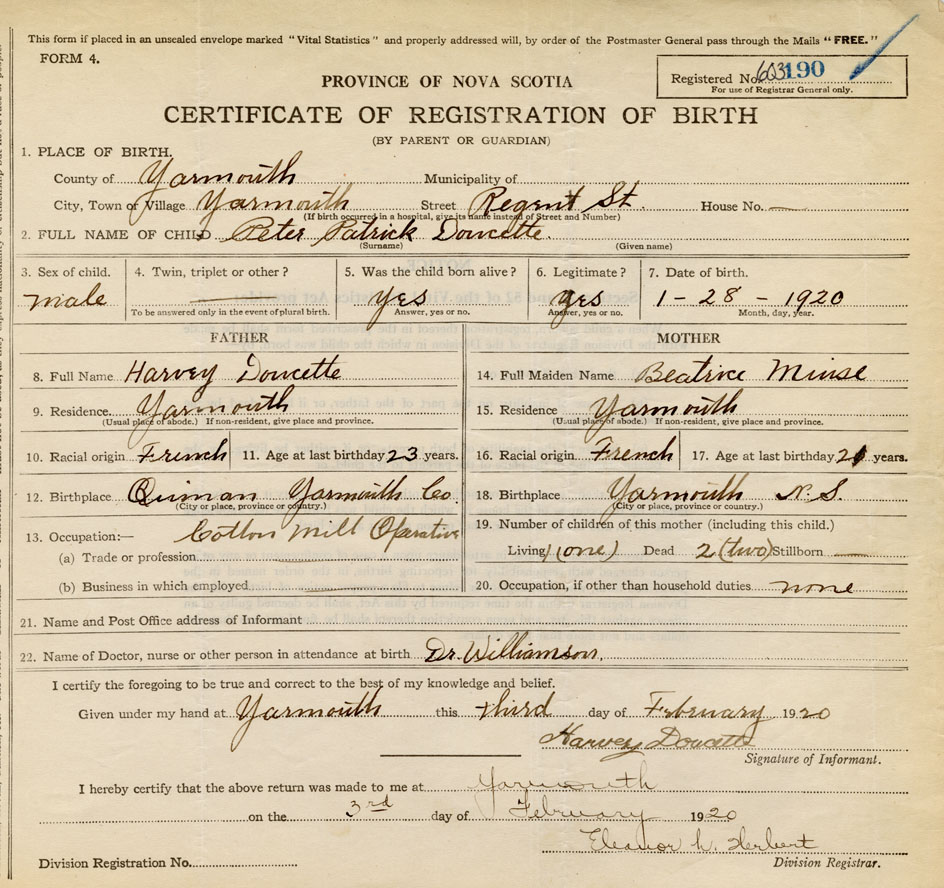 This form if placed in an unsealed envelope marked "Vital Statistics" and properly addressed will, by order of the Postmaster General pass through the Mails "FREE."
FORM 4.
PROVINCE OF NOVA SCOTIA
Registered No. 603190
For use of Registrar General only.
CERTIFICATE OF REGISTRATION OF BIRTH
(BY PARENT OR GUARDIAN)
1. PLACE OF BIRTH.
County of Yarmouth Municipality of
City, Town or Village Yarmouth Street Regent St. House No. —
(If birth occurred in a hospital, give its name instead of Street and Number)
2. FULL NAME OF CHILD Peter Patrick Doucette.
(Surname) (Given name)
3. Sex of child. 4. Twin, triplet or other? 5. Was the child born alive? 6. Legitimate? 7. Date of birth.
male — Yes yes 1-28-1920
To be answered only in the event of plural birth. Answer, yes or no. Answer, yes or no. Month, day, year.
FATHER MOTHER
8. Full Name Harvey Doucette 14. Full Maiden Name Beatrice
9. Residence. Yarmouth 15. Residence Yarmouth
(Usual place of abode.) If non-resident, give place and province. (Usual place of abode.) If non-resident, give place and province.
10. Racial origin French 11. Age at last birthday 23 years. 16. Racial origin French 17. Age at last birthday 21 years.
12. Birthplace Quinan Yarmouth Co 18. Birthplace Yarmouth N.S.
(City or place, province or country.) (City or place, province or country.)
13. Occupation:— Cotton Mill Operative 19. Number of children of this mother (including this child.)
(a) Trade or profession Living 1 (one) Dead 2 (two) Stillborn —
(b) Business in which employed 20. Occupation, if other than household duties none
21. Name and Post Office address of Informant
22. Name of Doctor, nurse or other person in attendance at birth Dr. Williamson.
I certify the foregoing to be true and correct to the best of my knowledge and belief.
Given under my hand at Yarmouth this third day of February 1920
Harvey Doucette
Signature of Informant.
I hereby certify that the above return was made to me at Yarmouth
on the 3rd day of February 1920
Eleanor L. Herbert
Division Registration No. Division Registrar.